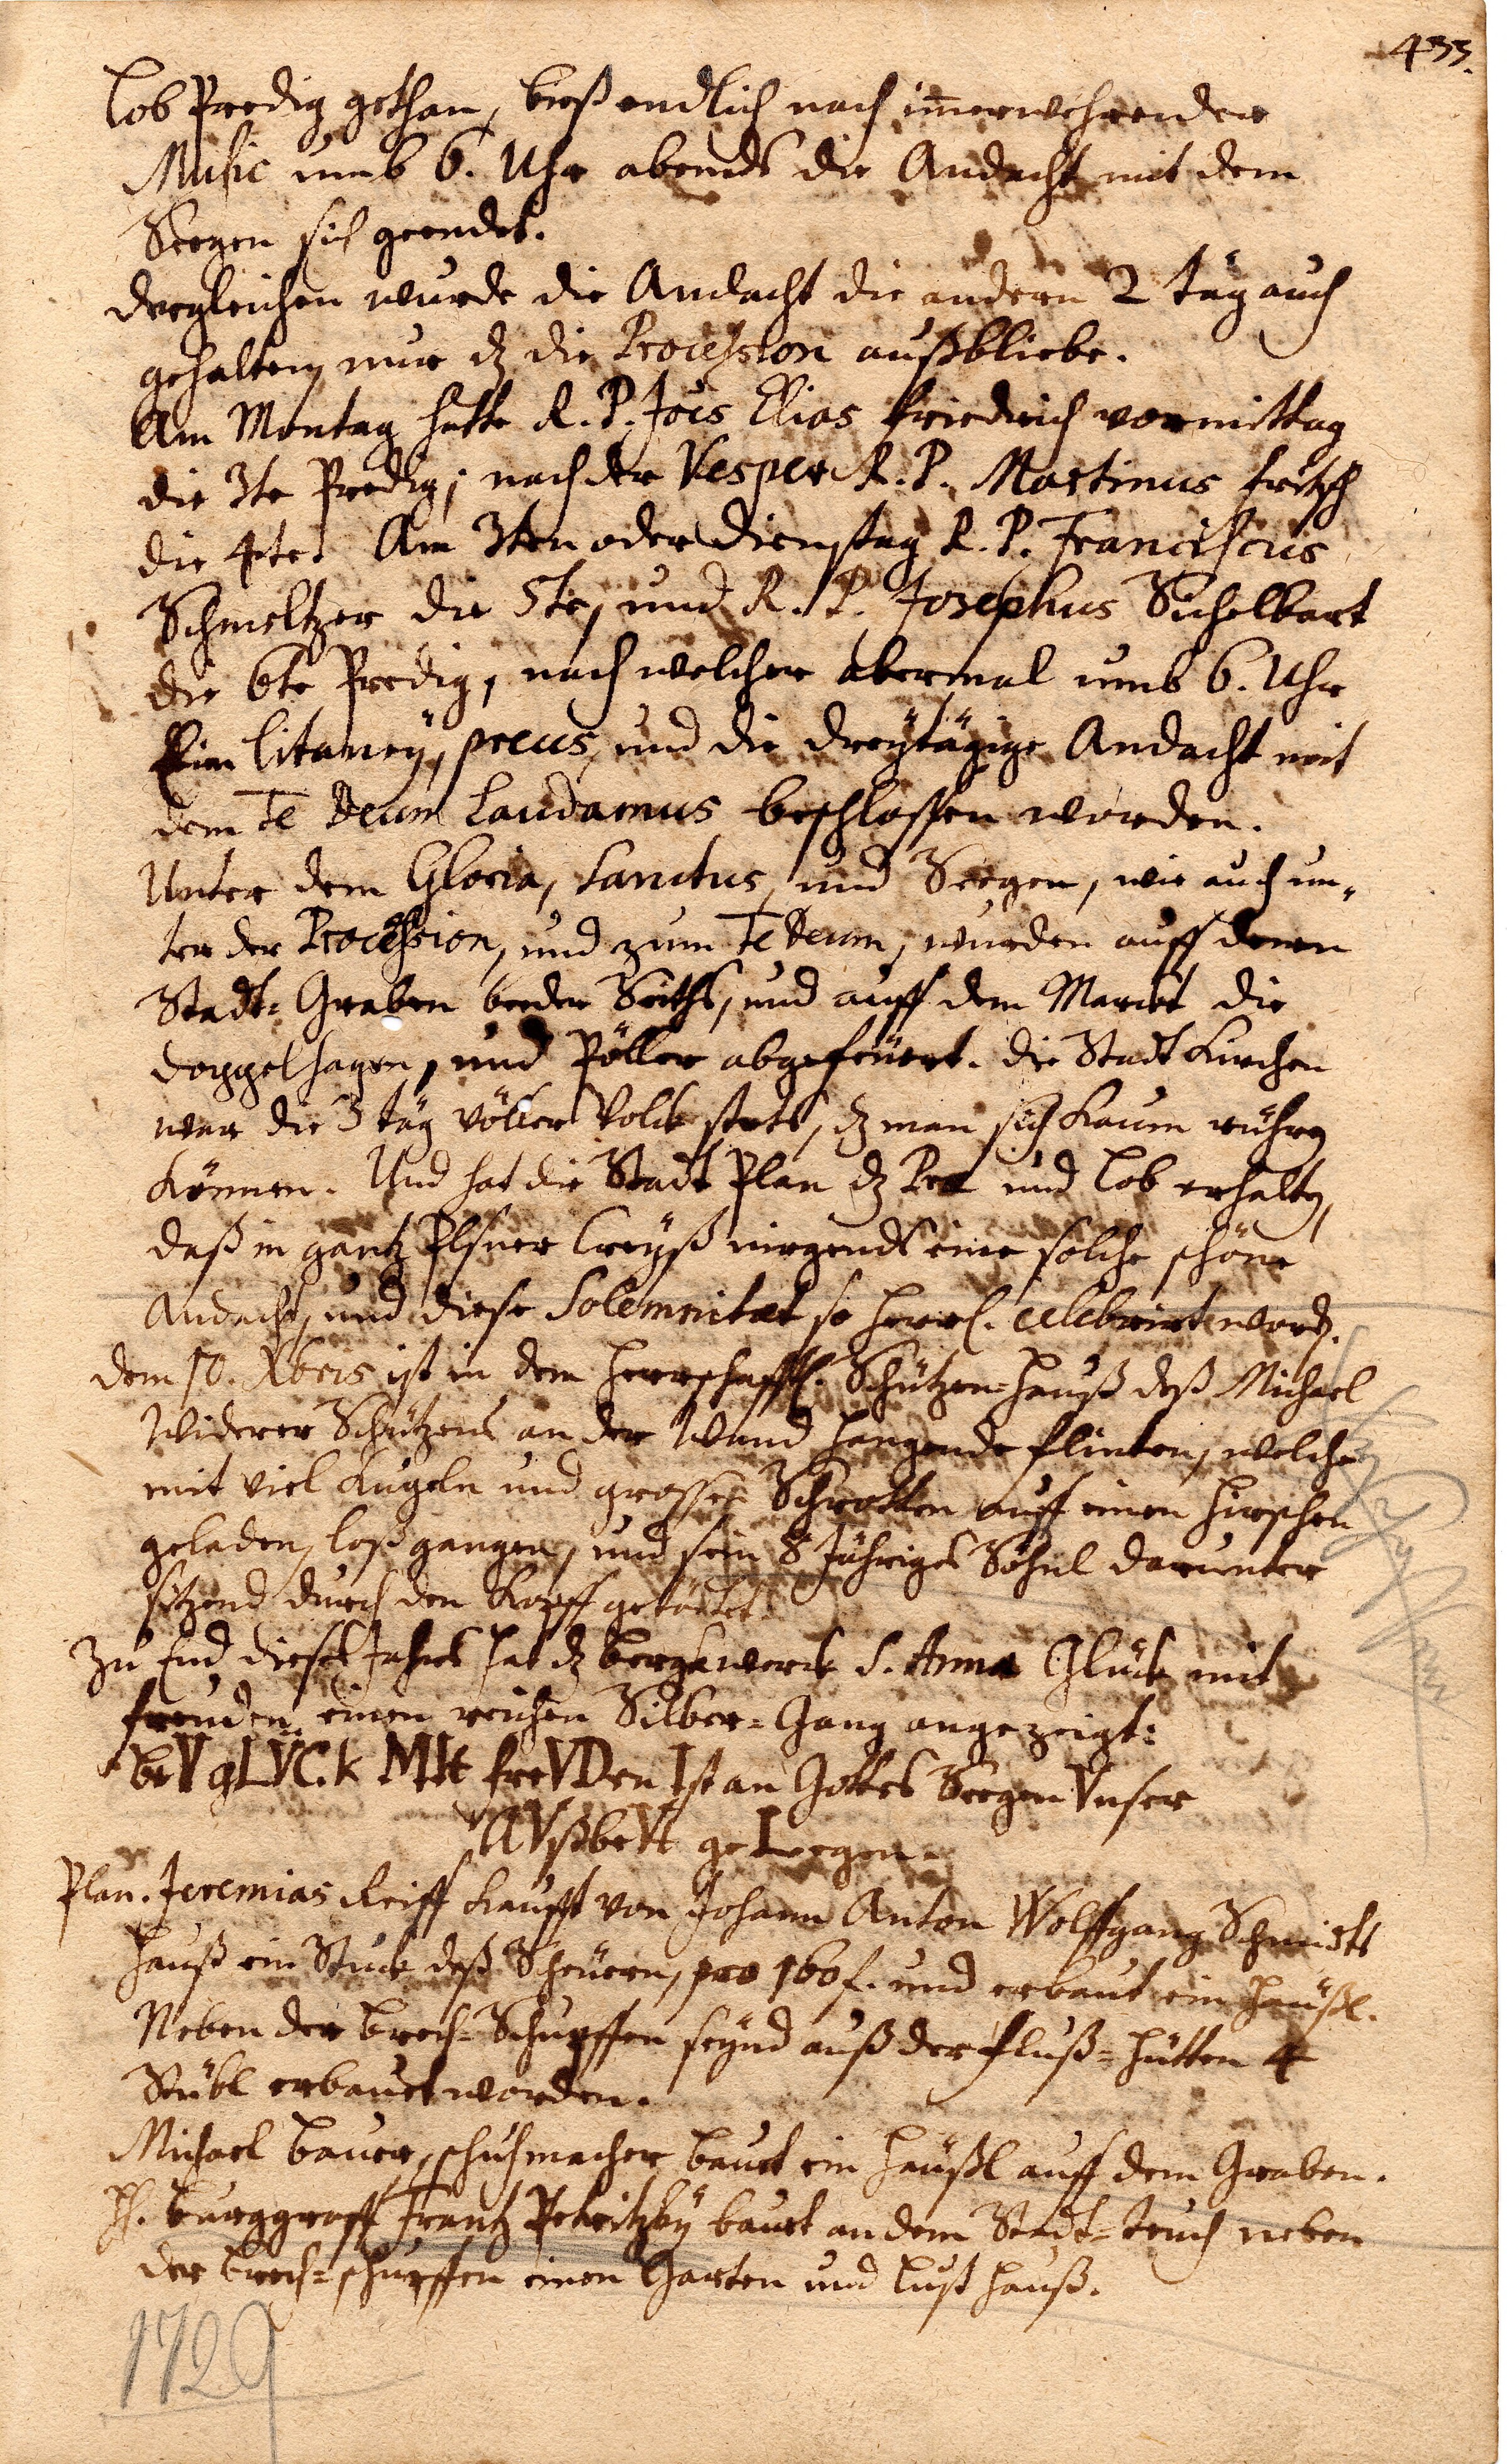 433.
Lob Predig gethan, bieß endlich nach im̅erwehrender
Music umb 6. Uhr abends die Andacht mit dem
Seegen sich geendet.
Dergleichen wurde die Andacht die andern 2 täg auch
gehalten, nur dz die Procession außbliebe.
Am Montag hatte R. P. Joës Elias Friedrich vormittag
die 3te Predig; nach der Vesper R. P. Martinus Fritsch
die 4te. Am 3ten oder Dienstag R. P. Franciscus
Schmeltzer die 5te, und R. P. Josephus Sichelbart
die 6te Predig, nach welcher abermal umb 6. Uhr
Eine Litaney, preces, und die dreytägige Andacht mit
dem Te Deum Laudamus beschlossen worden.
Unter dem Gloria, Sanctus, und Seegen, wie auch un-
ter der Procession, und zum Te Deum, wurden auff denen
Stadt-Graben beeder Seiths, und auff dem Marckt die
Doppelhagen, und Pöller abgefeüert. Die Stadt Kirchen
war die 3 täg völler Volck stets, dz man sich kaum rühren
können. Und hat die Stadt Plan dz Prae und Lob erhalten,
daß in gantz Plsner Creyß nirgends eine solche schöne
Andacht, und diese Solemnitaet so herrl. celebrirt word.
Dem 10. Xbris ist in dem Herrschafftl. Schützen-Hauß deß Michael
Widerer Schützens an der Wand hangende Flinten, welche
mit viel Kugeln und grossen Schrotten auff einen Hirschen
geladen, loßgangen, und sein 8 Jähriges Söhnl darunter
sitzend durch den Kopff getödtet.
Zu End dieses Jahrs hat dz Bergkwerck S. Anna Glück mit
Freuden einen reichen Silber-Gang angezeigt:
beV gLVCk MIt freVDen Ist an Gottes Seegen Vnser
AVßbeVt geLeegen.
Plan. Jeremias Reiff kaufft von Johann Anton Wolffgang Schmidts
Hauß ein Stuck deß Scheüern, pro 160 f. und erbaut ein Heüßl.
Neben der Brech-Schupffen seynd auß der Fluß-Hütten 4
Stübl erbauet worden.
Michael Bauer, schuhmacher bauet ein Häußl auff dem Graben.
H. Burggraff Frantz Petritzky bauet an dem Stadt-Teuch neben
der Brech-schupffen einen Garten und Lust Hauß.
1729